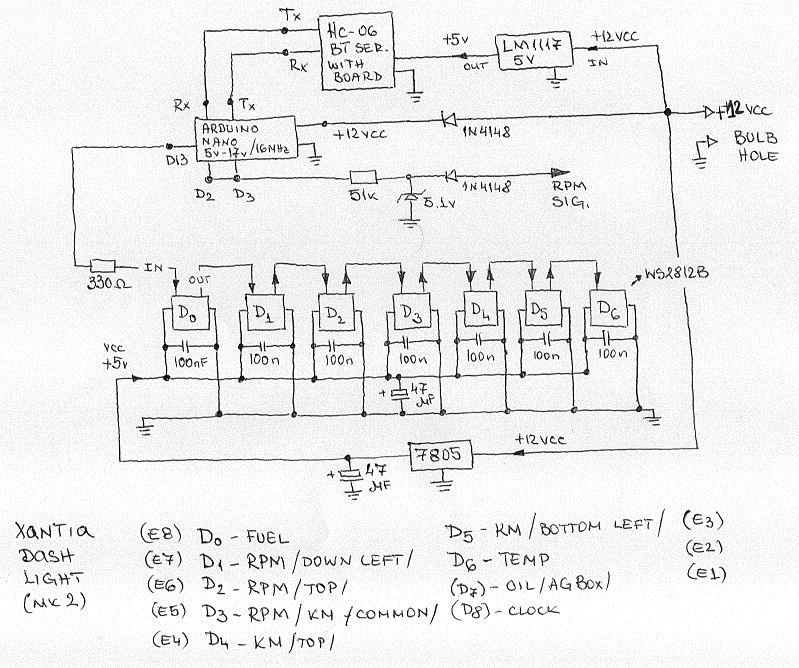 Tx
HC-06
BT SER.
WITH
BOARD
Rx
+5v
OUT
LM1117
5V
+12VCC
IN
Rx
Tx
ARDUINO
NANO
5v-17v/16MHz
+12VCC
1N4148
+12VCC
BULB
HOLE
D13
D2 D3
51K
5.1V
1N4148
RPM
SIG.
330Ω
IN
OUT
WS2812B
D0 D1 D2 D3 D4 D5 D6
100nF 100n 100n 100n 100n 100n 100n
VCC
+5v
+ 47
MF
+12VCC
7805
+ 47
MF
XANTIA
DASH
LIGHT
(MK2)
(E8) D0 - FUEL
(E7) D1 - RPM /DOWN LEFT/
(E6) D2 - RPM /TOP/
(E5) D3 - RPM / KM /COMMON/
(E4) D4 - KM /TOP/
D5 - KM /BOTTOM LEFT/ (E3)
D6 - TEMP (E2)
(D7) - OIL /AGBOX/ (E1)
(D8) - CLOCK